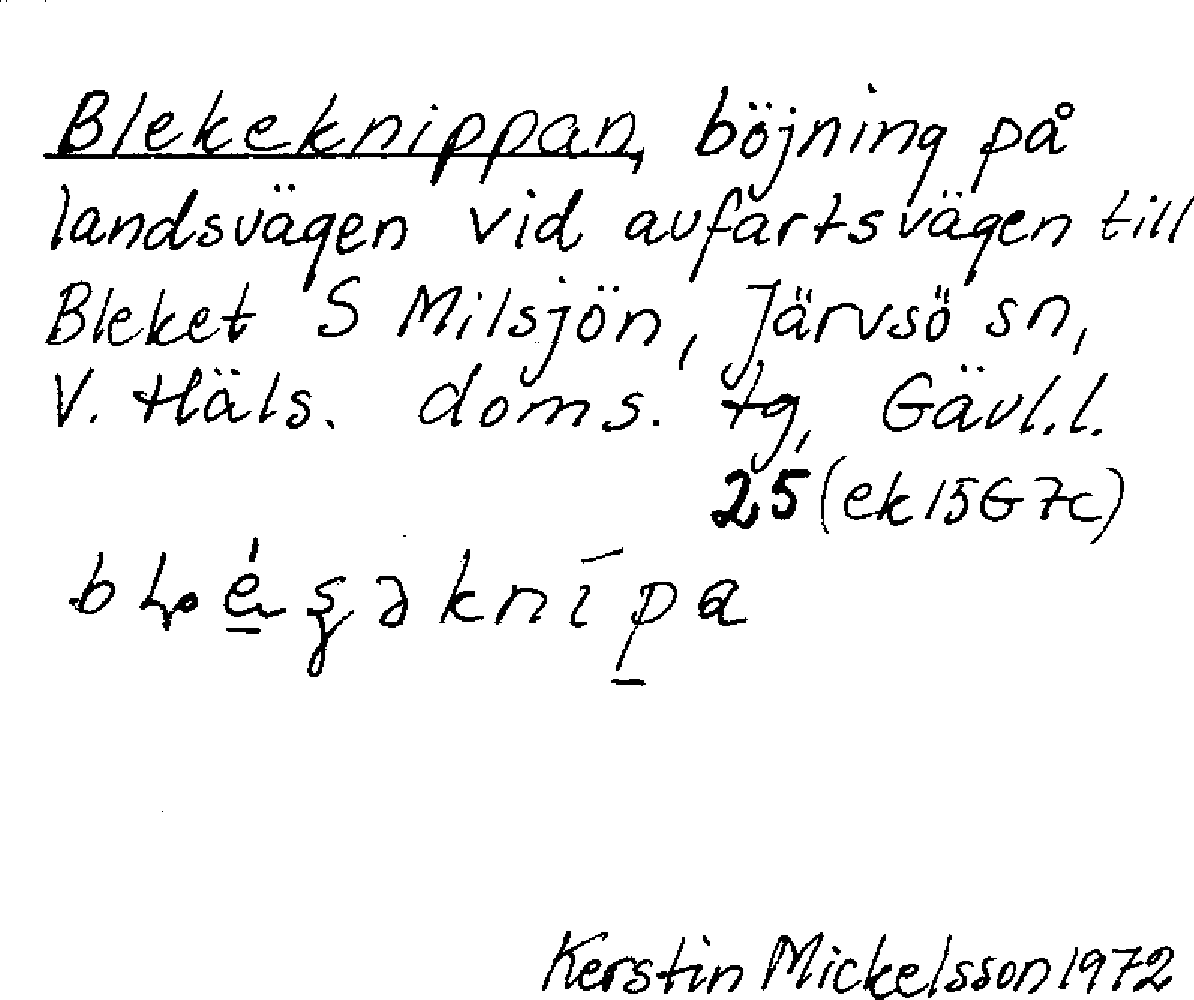 Blekeknippan, böjning på
landsvägen vid avfartsvägen till
Bleket S Milsjön, Järvsö sn,
V. Häls. doms. tg, Gävl.l.
25 (ek 15G 7c)
Kerstin Mickelsson 1972